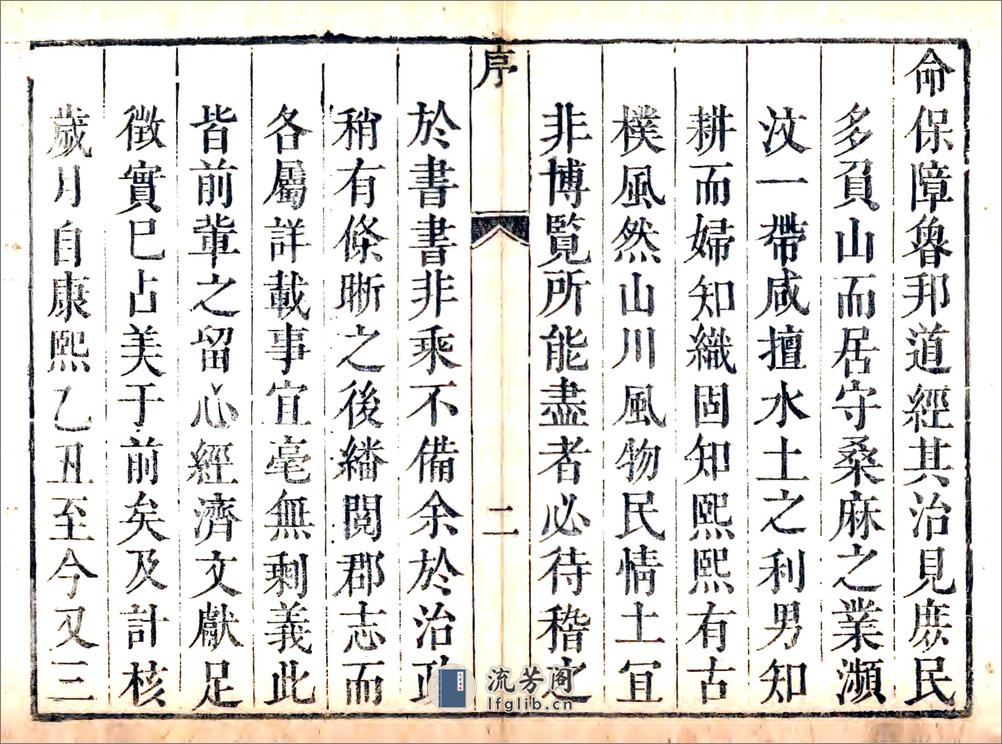 命保障魯邦道經其治見庻民
多負山而居守桑麻之業瀕
汶一帶咸擅水土之利男知
耕而婦知織固知熙熙有古
樸風然山川風物民情土宜
非博覽所能盡者必待稽之
序
二
於書書非乘不備余於治政
稍有條晰之後繙閱郡志而
各屬詳載事宜毫無剩義此
皆前輩之留心經濟文獻足
徴實已占美于前矣及計核
歲月自康熙乙丑至今又三
流芳阁
lfglib.cn